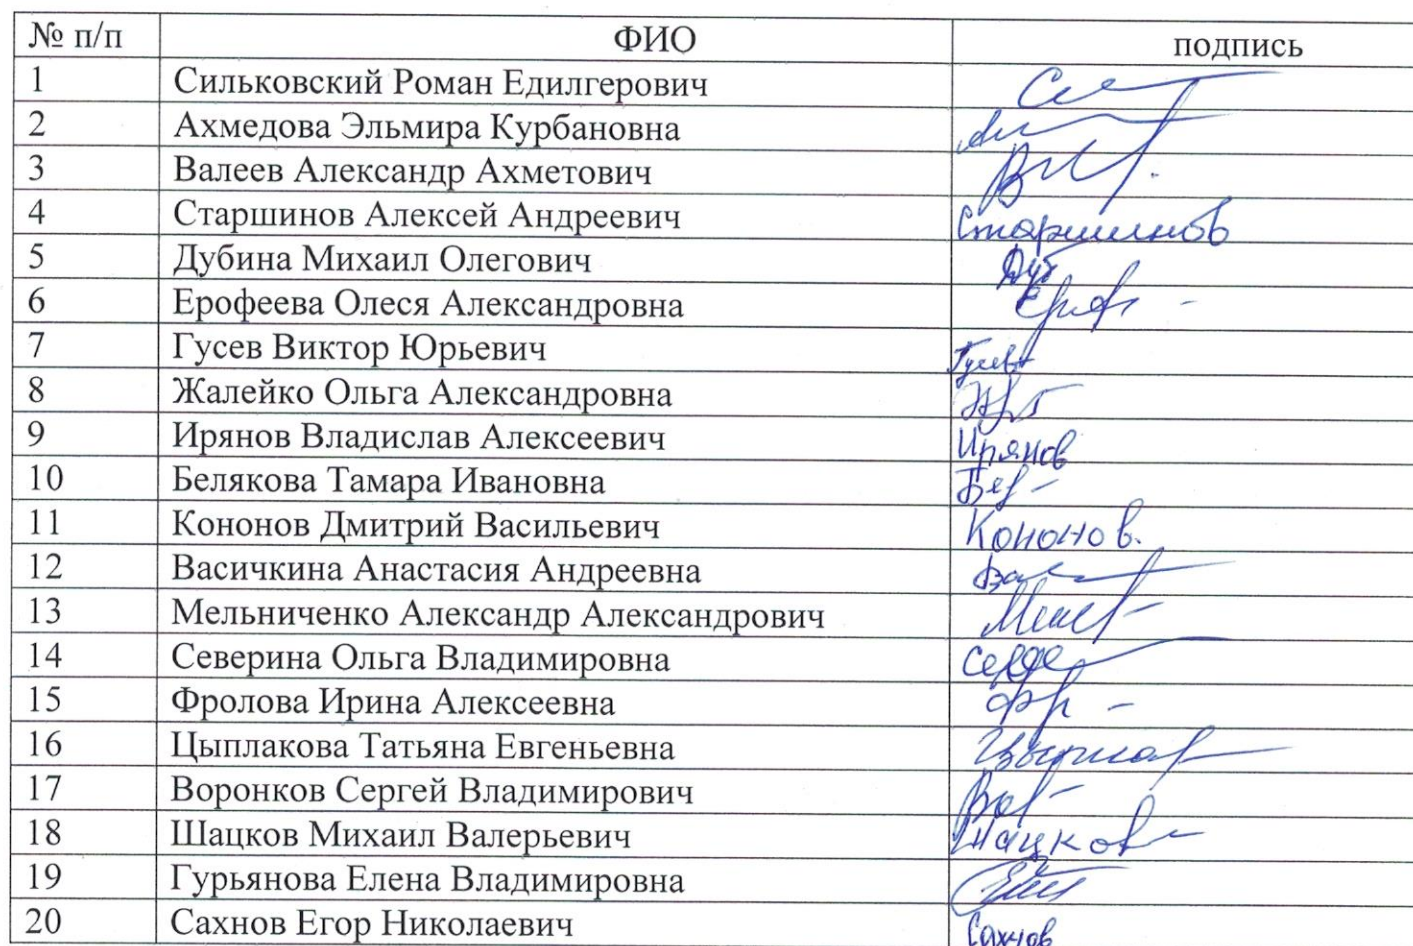 № п/п ФИО подпись
1 Сильковский Роман Едилгерович
2 Ахмедова Эльмира Курбановна
3 Валеев Александр Ахметович
4 Старшинов Алексей Андреевич Старшинов
5 Дубина Михаил Олегович
6 Ерофеева Олеся Александровна
7 Гусев Виктор Юрьевич
8 Жалейко Ольга Александровна
9 Ирянов Владислав Алексеевич Ирянов
10 Белякова Тамара Ивановна
11 Кононов Дмитрий Васильевич Кононов.
12 Васичкина Анастасия Андреевна
13 Мельниченко Александр Александрович
14 Северина Ольга Владимировна
15 Фролова Ирина Алексеевна
16 Цыплакова Татьяна Евгеньевна
17 Воронков Сергей Владимирович
18 Шацков Михаил Валерьевич Шацков
19 Гурьянова Елена Владимировна
20 Сахнов Егор Николаевич Сахнов